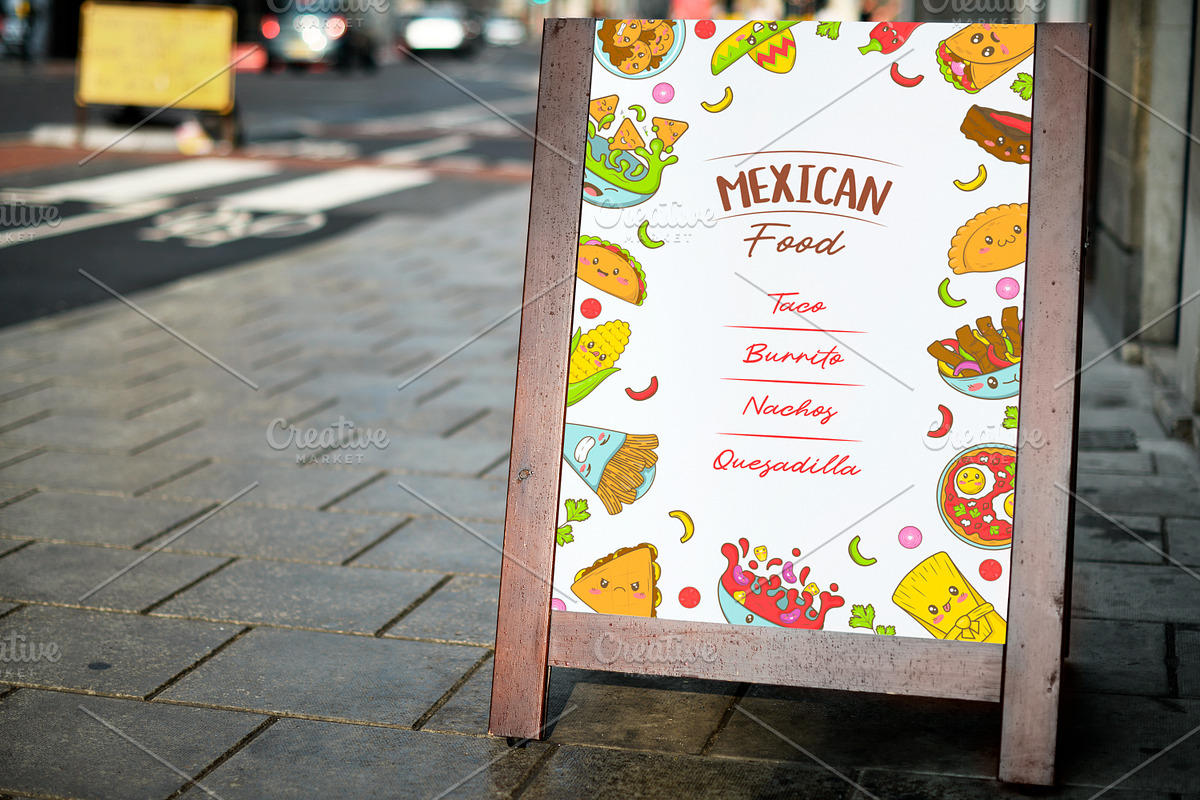 MEXICAN
Food
Taco
Burrito
Nachos
Quesadilla
Creative
MARKET
Creative
MARKET
Creative
MARKET
Creative
MARKET
Creative
MARKET
Creative
MARKET
Creative
Creative
Creative